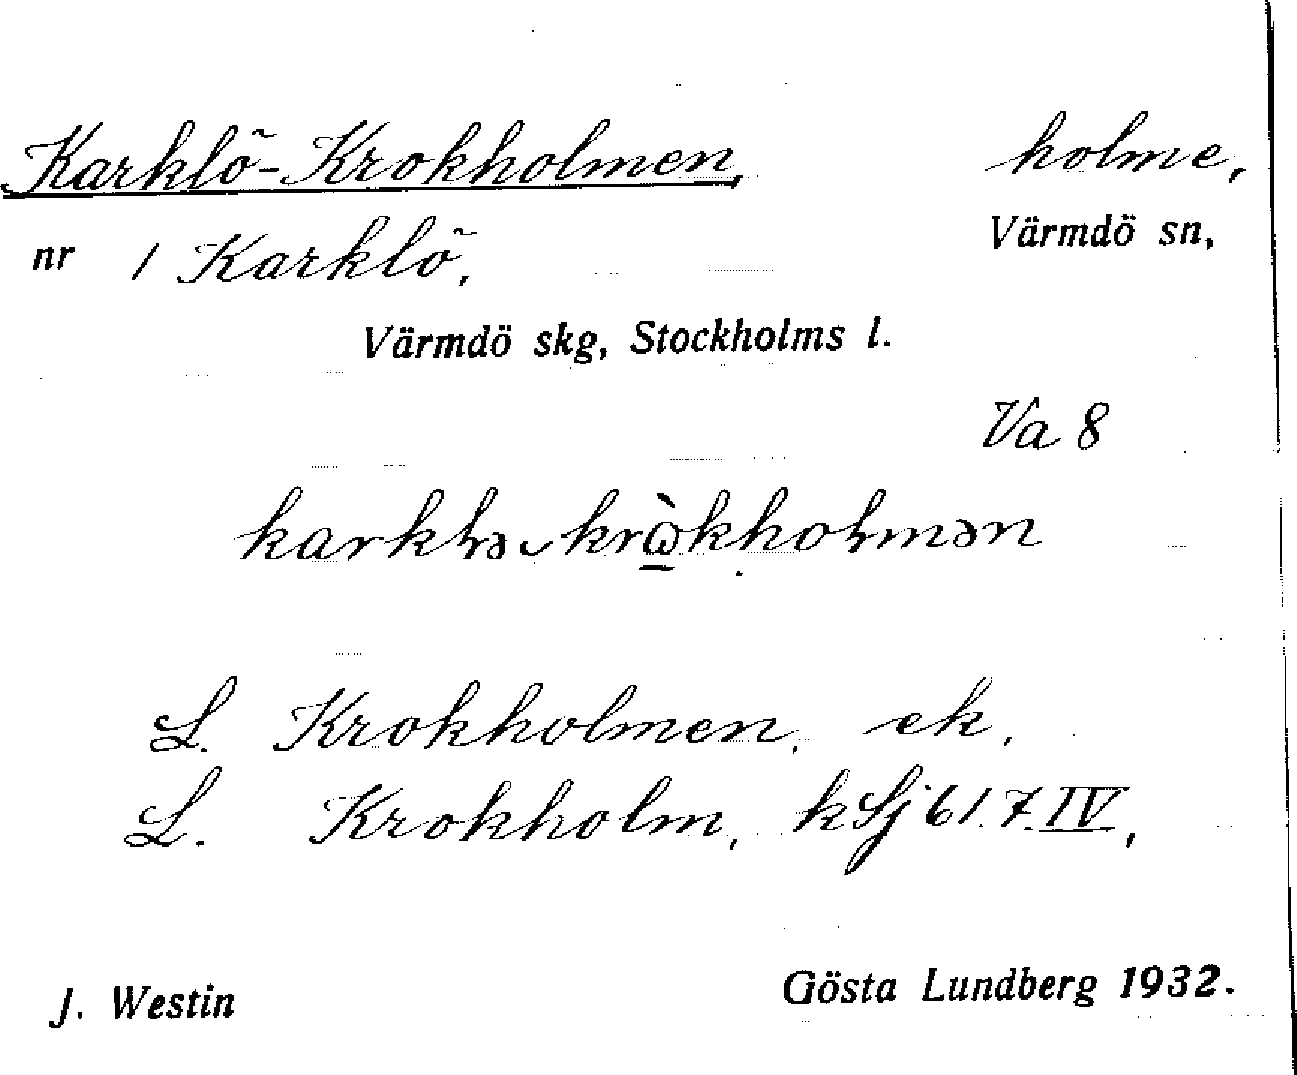 Karklö-Krokholmen, holme,
nr 1 Karklö, Värmdö sn,
Värmdö skg, Stockholms l.
Va 8
L. Krokholmen, ek.
L. Krokholm, k Sj 61.7.IV,
J. Westin Gösta Lundberg 1932.